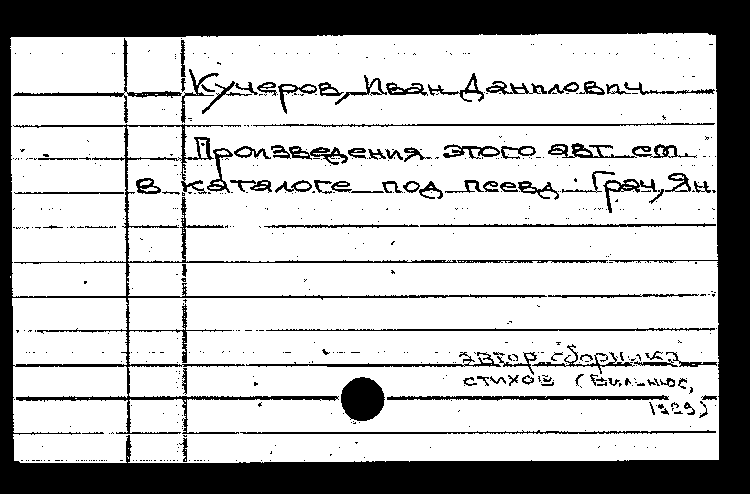 Кучеров, Иван Данилович
Произведения этого авт. см.
в каталоге под псевд.: Грач, Ян.
автор сборника
стихов (Вильнюс,
1929)